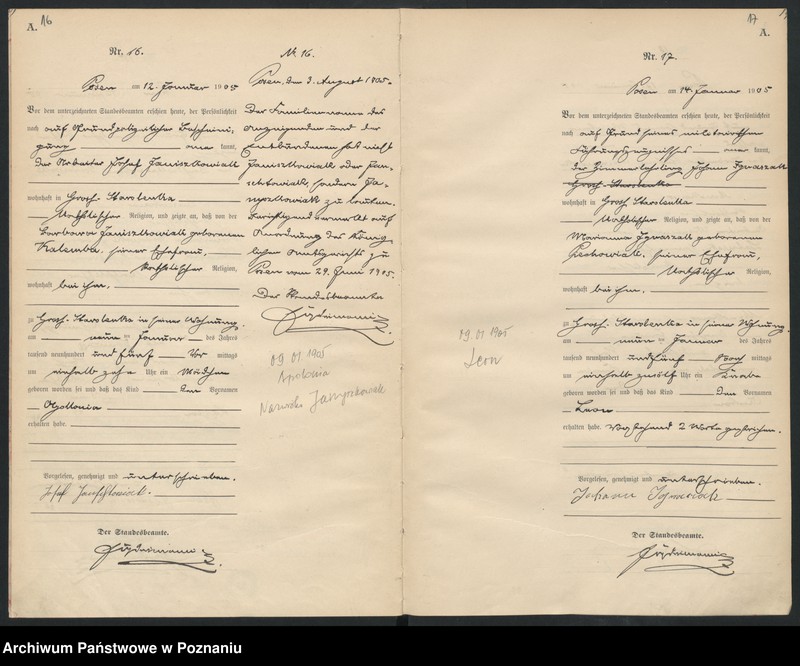 16
A.
Nr. 16.
Posen am 12. Januar 1905
Vor dem unterzeichneten Standesbeamten erschien heute, der Persönlichkeit
nach auf Grund polizeilicher Bescheini-
gung kannt,
der Arbeiter Josef Janiszkowiak
wohnhaft in Groß Starolenka
katholischer Religion, und zeigte an, daß von der
Barbara Janiszkowiak geborenen
Kalemba, seiner Ehefrau,
katholischer Religion,
wohnhaft bei ihm,
zu Groß Starolenka in seiner Wohnung,
am neunten Januar des Jahres
tausend neunhundert und fünf Vor mittags
um einhalb zehn Uhr ein Mädchen
geboren worden sei und daß das Kind den Vornamen
Apollonia
erhalten habe.
Vorgelesen, genehmigt und unterschrieben.
Der Standesbeamte.
No 16.
Posen, den 3. August 1905.
Der Familienname des
Anzeigenden und der
Entbundenen hat nicht
Janiszkowiak oder Jan-
sondern Ja-
zu lauten.
Berichtigend vermerkt auf
Anordnung des König-
lichen Amtsgerichts zu
Posen vom 29. Juni 1905.
Der Standesbeamte
09.01.1905
Apolonia
Nazwisko
17
A.
Nr. 17.
Posen am 14. Januar 1905
Vor dem unterzeichneten Standesbeamten erschien heute, der Persönlichkeit
nach auf Grund seines militärischen
Führungszeugnisses kannt,
Groß Starolenka
wohnhaft in Groß Starolenka
katholischer Religion, und zeigte an, daß von der
Marianna geborenen
seiner Ehefrau,
katholischer Religion,
wohnhaft bei ihm,
zu Groß Starolenka in seiner Wohnung,
am neunten Januar des Jahres
tausend neunhundert und fünf Nach mittags
um einhalb zwölf Uhr ein Knabe
geboren worden sei und daß das Kind den Vornamen
Leon
erhalten habe. Vorstehend 2 Worte gestrichen.
Vorgelesen, genehmigt und unterschrieben.
Johann
Der Standesbeamte.
09.01.1905
Leon
Archiwum Państwowe w Poznaniu